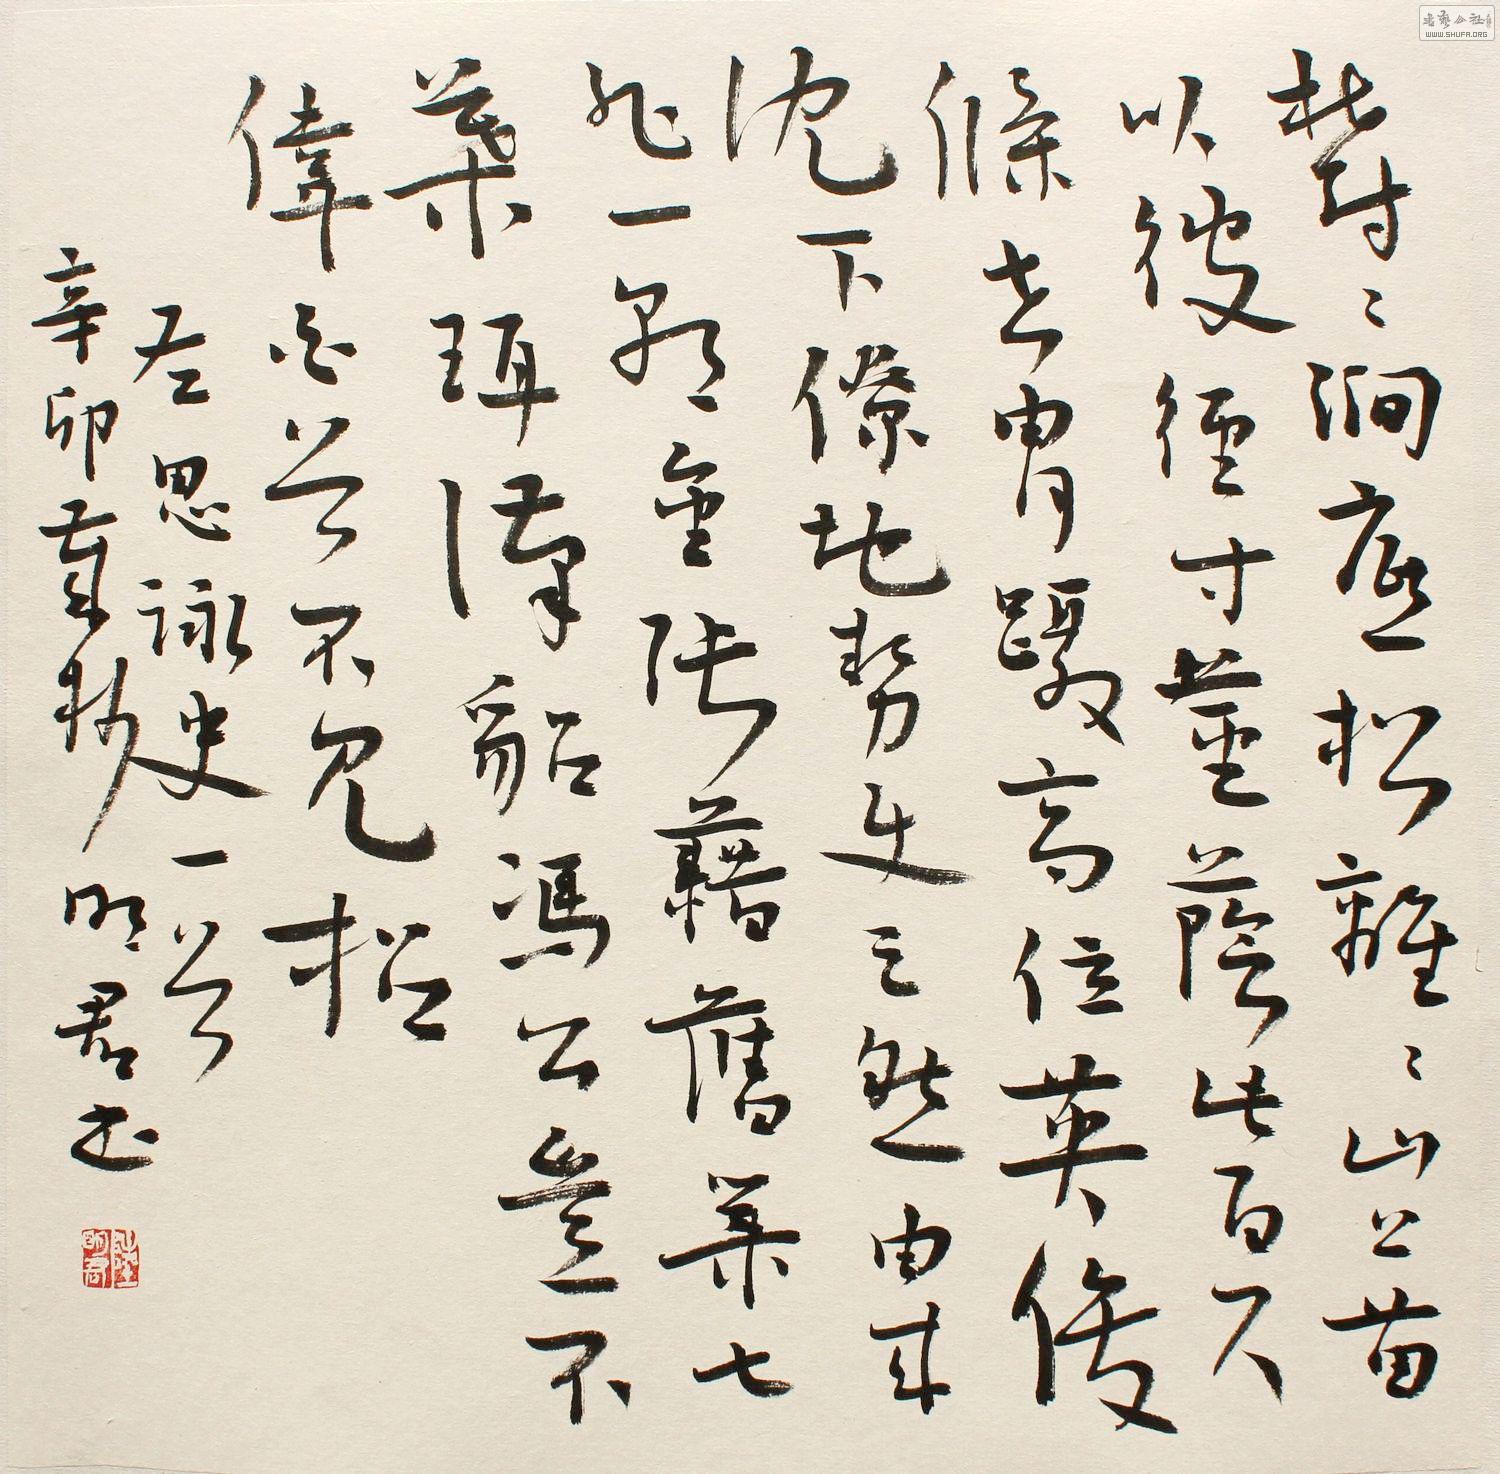 鬱〻澗底松離〻山上苗
以彼徑寸莖蔭此百尺
條世胄躡高位英俊
沈下僚地勢使之然由来
非一朝金張藉舊業七
葉珥漢貂馮公豈不
偉白首不見招
左思詠史一首
辛卯秋明君书
陸明君
書艺公社
WWW.SHUFA.ORG